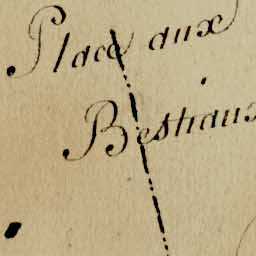 Place aux
Bestiaux